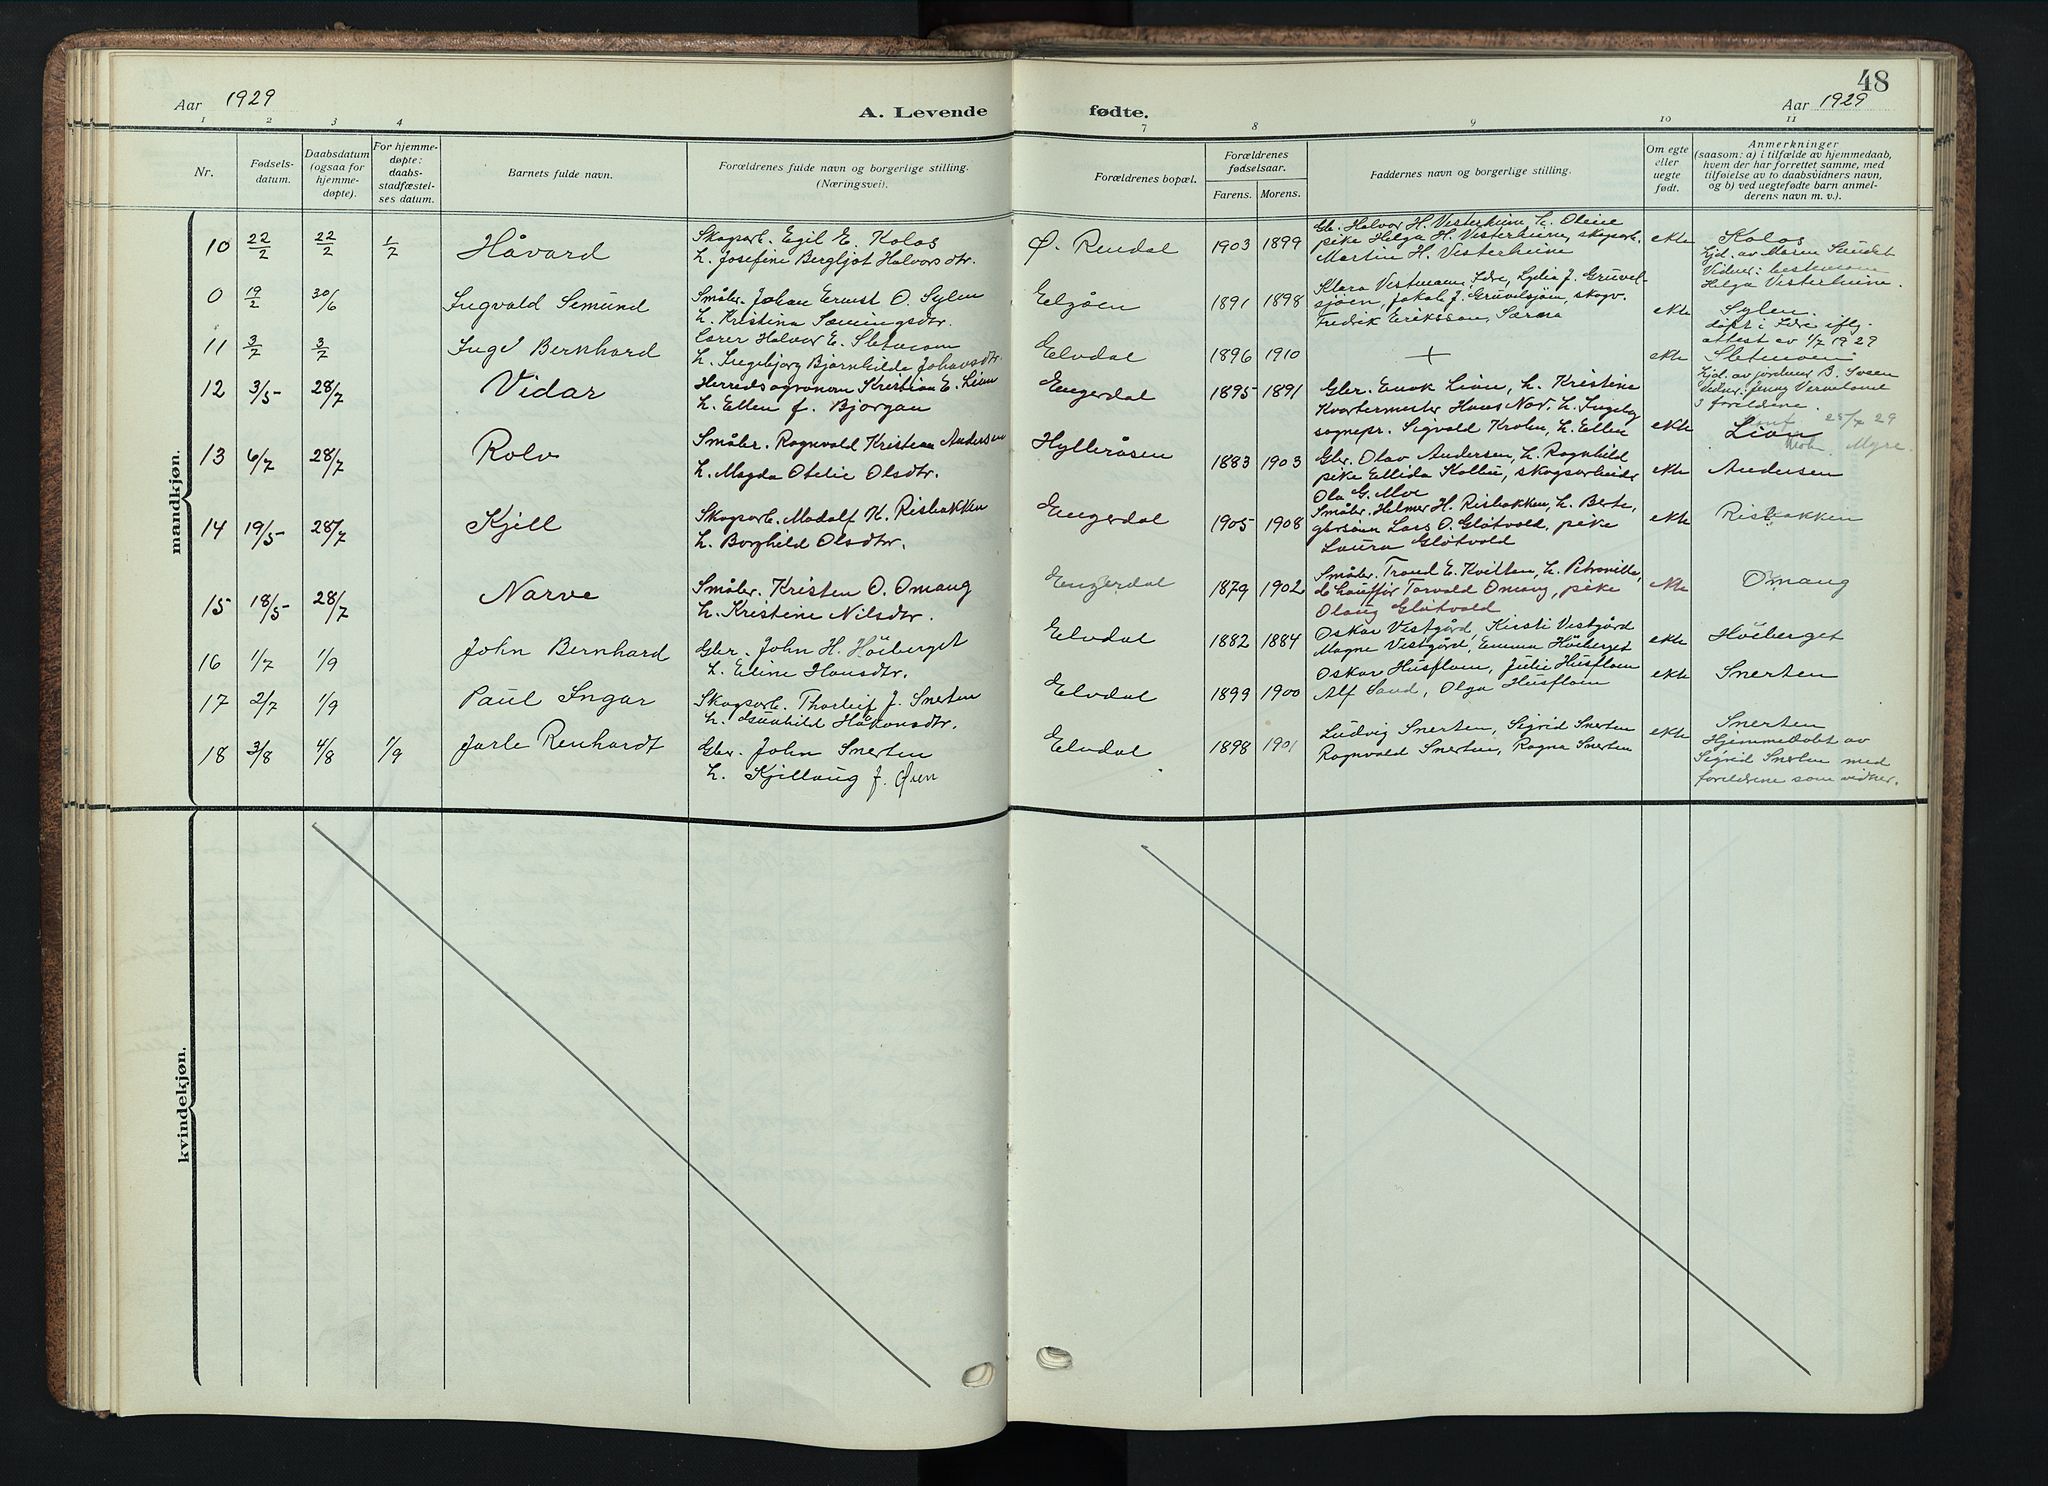 48
Aar 1929
A. Levende fødte.
Aar 1929
1 2 3 4 7 8 9 10 11
Nr.
Fødsels-
datum.
Daabsdatum
(ogsaa for
hjemme-
døpte).
For hjemme-
døpte:
daabs-
stadfæstel-
ses datum.
Barnets fulde navn.
Forældrenes fulde navn og borgerlige stilling.
(Næringsvei).
Forældrenes bopæl.
Forældrenes
fødselsaar.
Farens. Morens.
Faddernes navn og borgerlige stilling.
Om egte
eller
uegte
født.
Anmerkninger
(saasom: a) i tilfælde av hjemmedaab,
hvem der har forrettet samme, med
tilføielse av to daabsvidners navn,
og b) ved uegtefødte barn anmel-
derens navn m. v.).
mandkjøn.
10 22/2 22/2 1/7 Håvard
Skogsarb. Egil E. Kolos
h. Josefine Bergljot Halvorsdtr.
Ø. Rendal 1903 1899
Gbr. Halvor H. Vesterheim h. Oline
pike Helga H. Vesterheim, skogsarb.
Martin H. Vesterheim
ekte
Kolos
Hjd. av Maren Sundet
Vidner: bestemam
Helga Vesterheim.
0 19/2 30/6 Ingvald Semund
Småbr. Johan Ernst O. Sylen
h. Kristina Sæmingsdtr.
Elgåen 1891 1898
Klara Vestman, Idre, Lydia J. Gruvel-
sjøen, Jakob J. Gruvelsjøen, skogv.
Fredrik Eriksson, Särna
ekte
Sylen.
døpt i Idre iflg.
attest av 1/7 1929
11 3/7 3/7 Inge Bernhard
Carer Halvor E. Sletmoen
h. Ingebjørg Bjørnhilda Johansdtr.
Elvdal 1896 1910
+
ekte
Sletmoen
Hjd. av jordmor B. Svsen
Vidner: Jenny Vermelone
& foreldrene.
12 3/5 28/7 Vidar
Herredsagronom Kristian E. Lian
h. Ellen f. Bjørgan
Engerdal 1895 1891
Gbr. Enok Lian, h. Kristine
Kvartermester Hans Nov. h. Ingeborg
sognepr. Sigvald Krohn, h. Ellen
ekte
Lian
25/7 29
Myre.
13 6/7 28/7 Rolv
Småbr. Ragnvald Kristian Andersen
h. Magda Otelie Olsdtr.
Hylleråsen 1883 1903
Gbr. Olav Andersen, h. Ragnhild
pike Ellida Kolbu, skogsarbeider
Ola G. Moe
ekte
Andersen
14 19/5 28/7 Kjell
Skogsarb. Modolf H. Risbakken
h. Borghild Olsdtr.
Engerdal 1905 1908
Småbr. Helmer H. Risbakken, h. Berte,
gbrsøn Lars O. Gløtvold, pike
Laura Gløtvold
ekte
Risbakken
15 18/5 28/7 Narve
Småbr. Kristen O. Omang
h. Kristine Nilsdtr.
Engerdal 1879 1902
Småbr. Trond E. Kvilten, h. Petronille,
chauffør Torvald Omang, pike
Olaug Gløtvold
ekte
Omang
16 1/7 1/9 John Bernhard
Gbr. John H. Høiberget
h. Eline Hansdtr.
Elvdal 1882 1884
Oskar Vestgård, Kirsti Vestgård
Magne Vestgård, Emma Høiberget
ekte
Høiberget
17 2/7 1/9 Paul Ingar
Skogsarb. Thorleif J. Snerten
h. Gunhild Håkonsdtr.
Elvdal 1899 1900
Oskar Husfloen, Julie Husfloen
Alf Sand, Olga Husfloen
ekte
Snerten
18 3/8 4/8 1/9 Jarle Renhardt
Gbr. John Snerten
h. Kjellaug f. Øien
Elvdal 1898 1901
Ludvig Snerten, Sigrid Snerten
Ragnvald Snerten, Ragna Snerten
ekte
Snerten
Hjemmedøbt av
Sigrid Snerten med
foreldrene som vidner.
kvindekjøn.